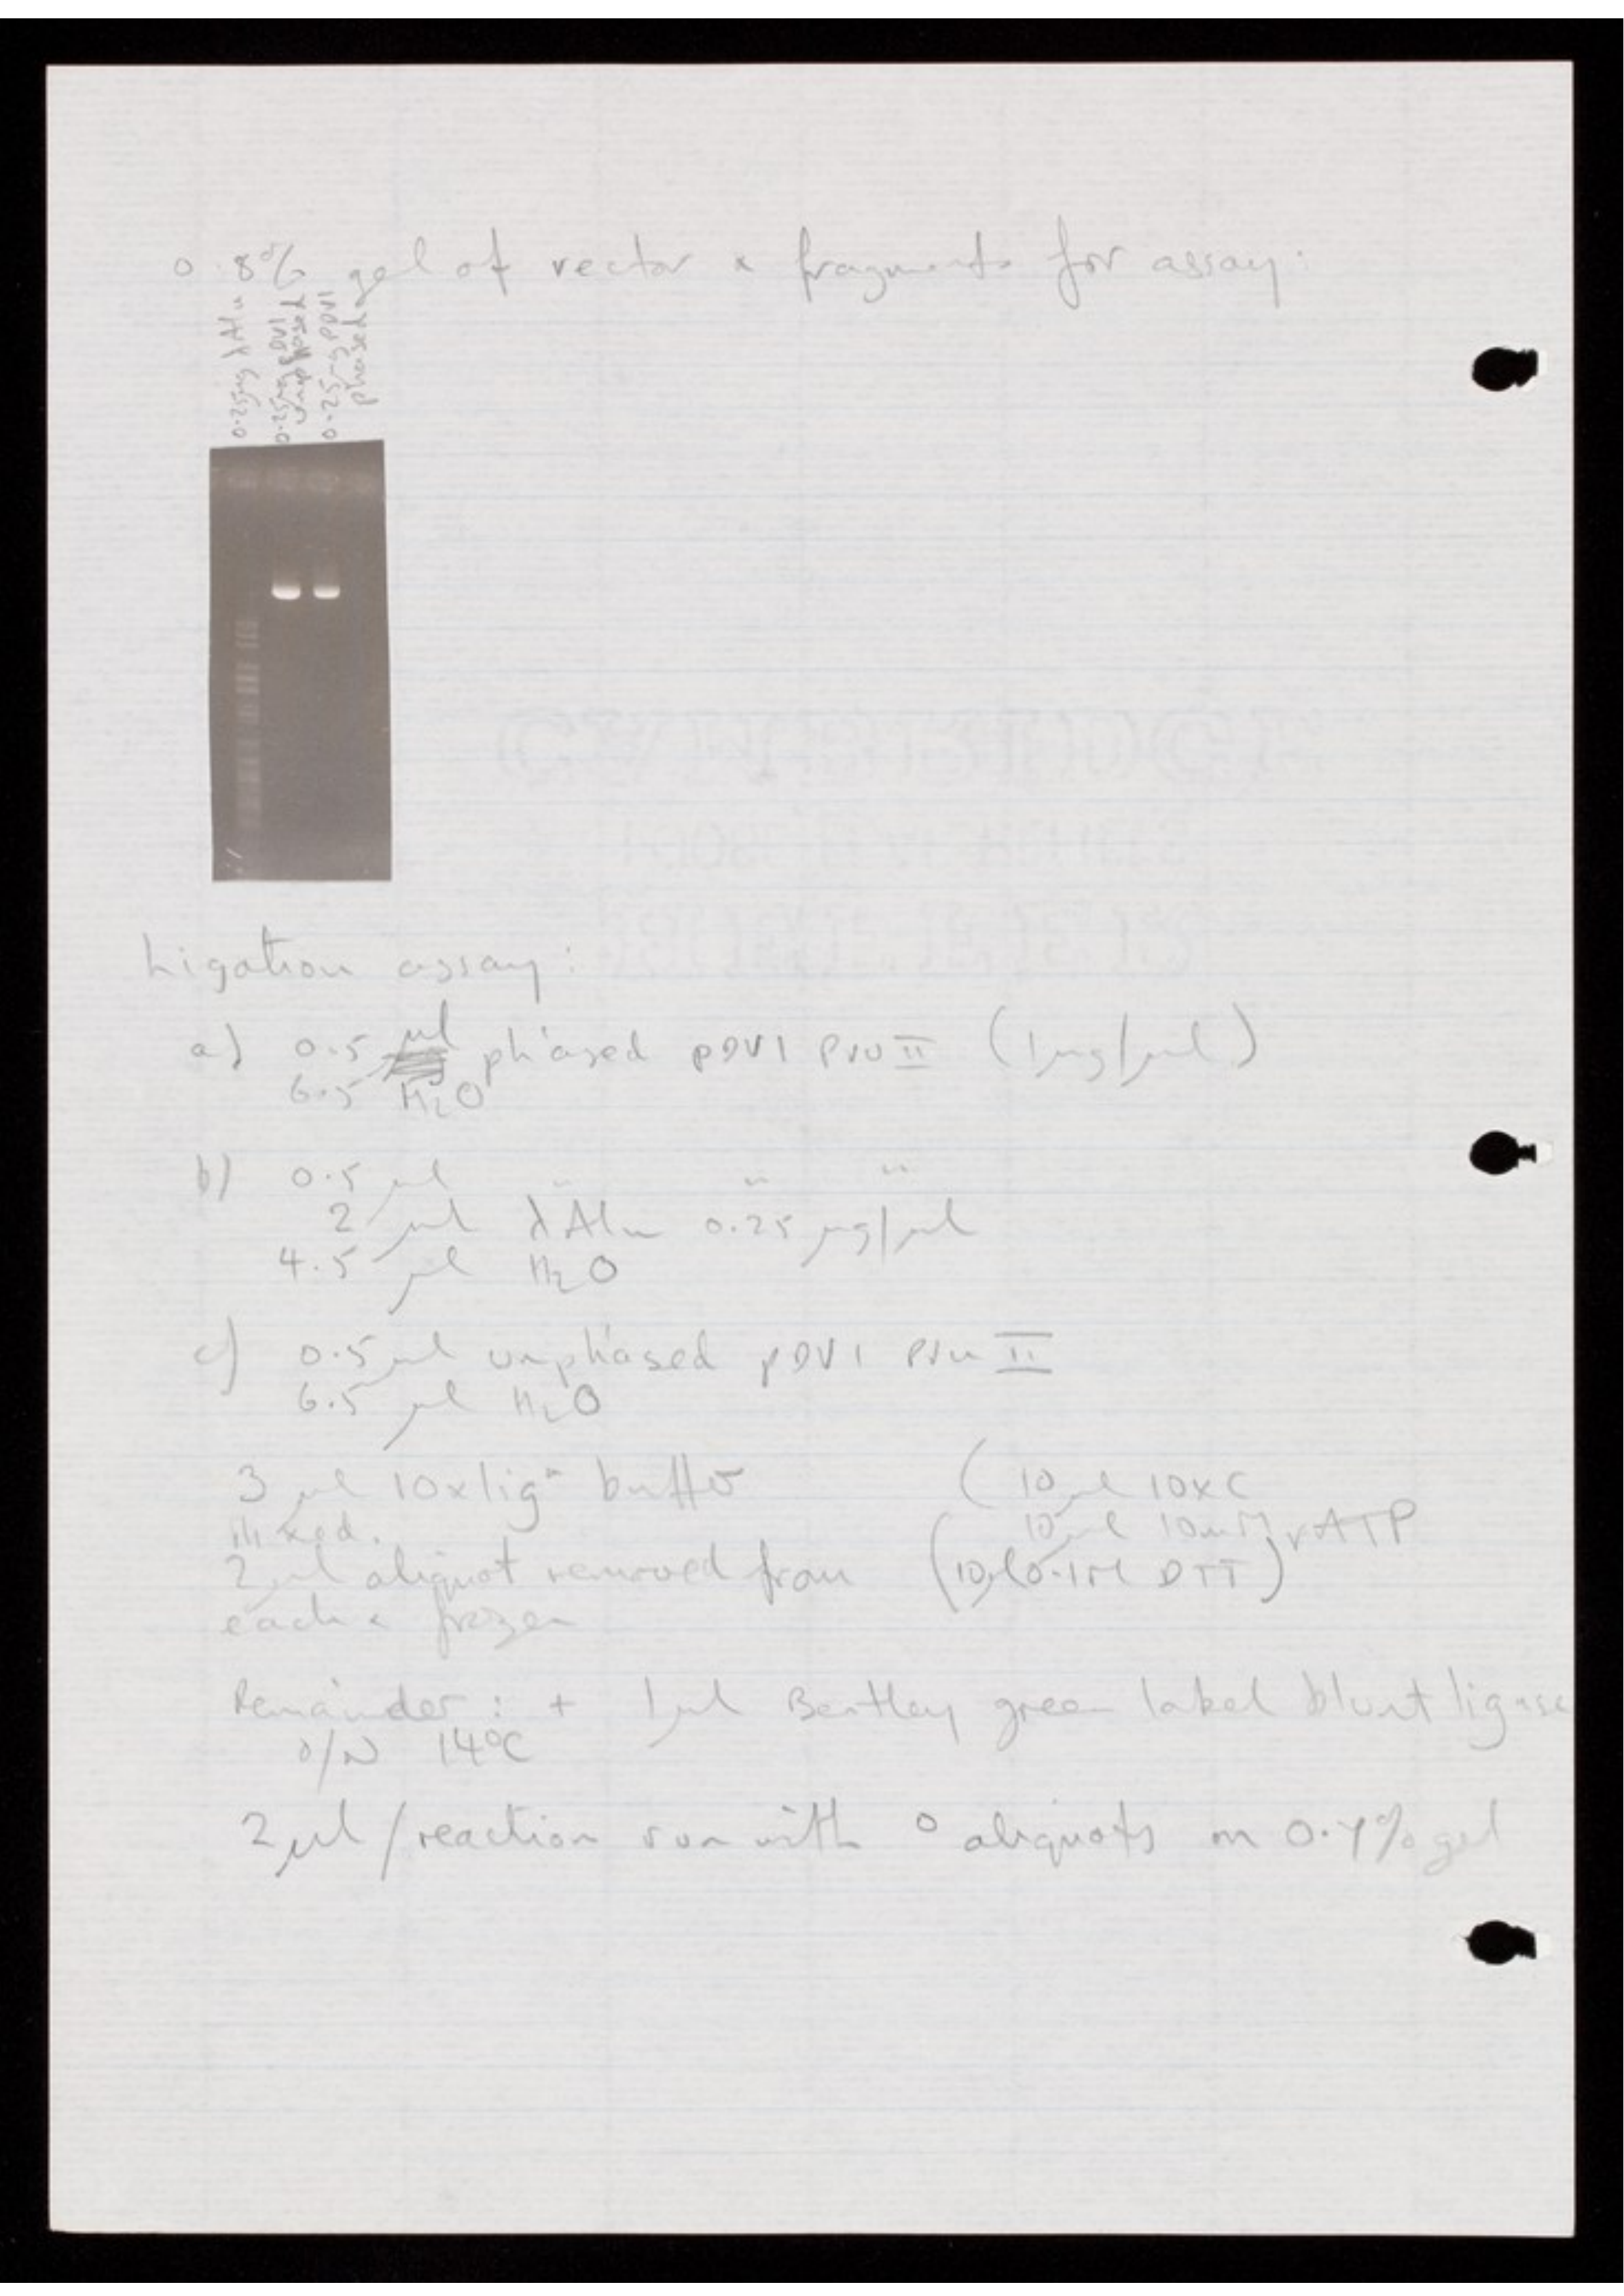 0.8% gel of vector & fragments for assay:
0.25µg λAlu
0.25µg pDV1
unphased
0.25µg pDV1
phased
Ligation assay:
a) 0.5 µl phased pDV1 PvuII (1µg/µl)
6.5 H2O
b) 0.5 µl " " "
2 µl λAlu 0.25 µg/µl
4.5 µl H2O
c) 0.5 µl unphased pDV1 PvuII
6.5 µl H2O
3 µl 10xlign buffer (10 µl 10xC
mixed. 10 µl 10mM rATP
2 µl aliquot removed from (10µl 0.1M DTT)
each & frozen
Remainder: + 1µl Bentley green label blunt ligase
o/N 14°C
2µl/reaction run with ° aliquots on gel